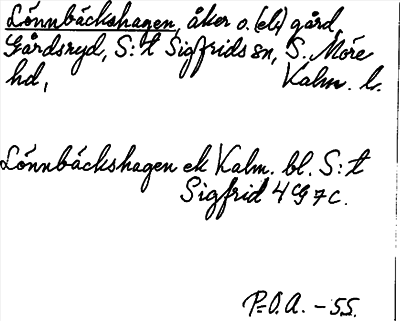 Lönnbäckshagen, åker o. (el.) gård,
Gårdsryd, S:t Sigfrids sn, S. Möre
hd, Kalm. l.
Lönnbäckshagen ek Kalm. bl. S:t
Sigfrid 4 g 7 c.
P-O.A. - 55.